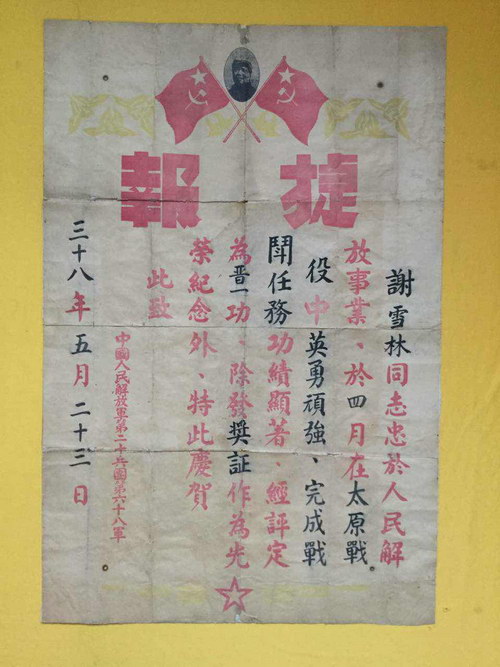 捷報
謝雪林同志忠於人民解
放事業、於四月在太原戰
役中英勇頑強、完成戰
鬥任務功績顯著、經評定
為晋一功、除發獎証作為光
榮紀念外、特此慶賀
此致
中國人民解放軍第二十兵團第六十八軍
三十八年五月二十三日